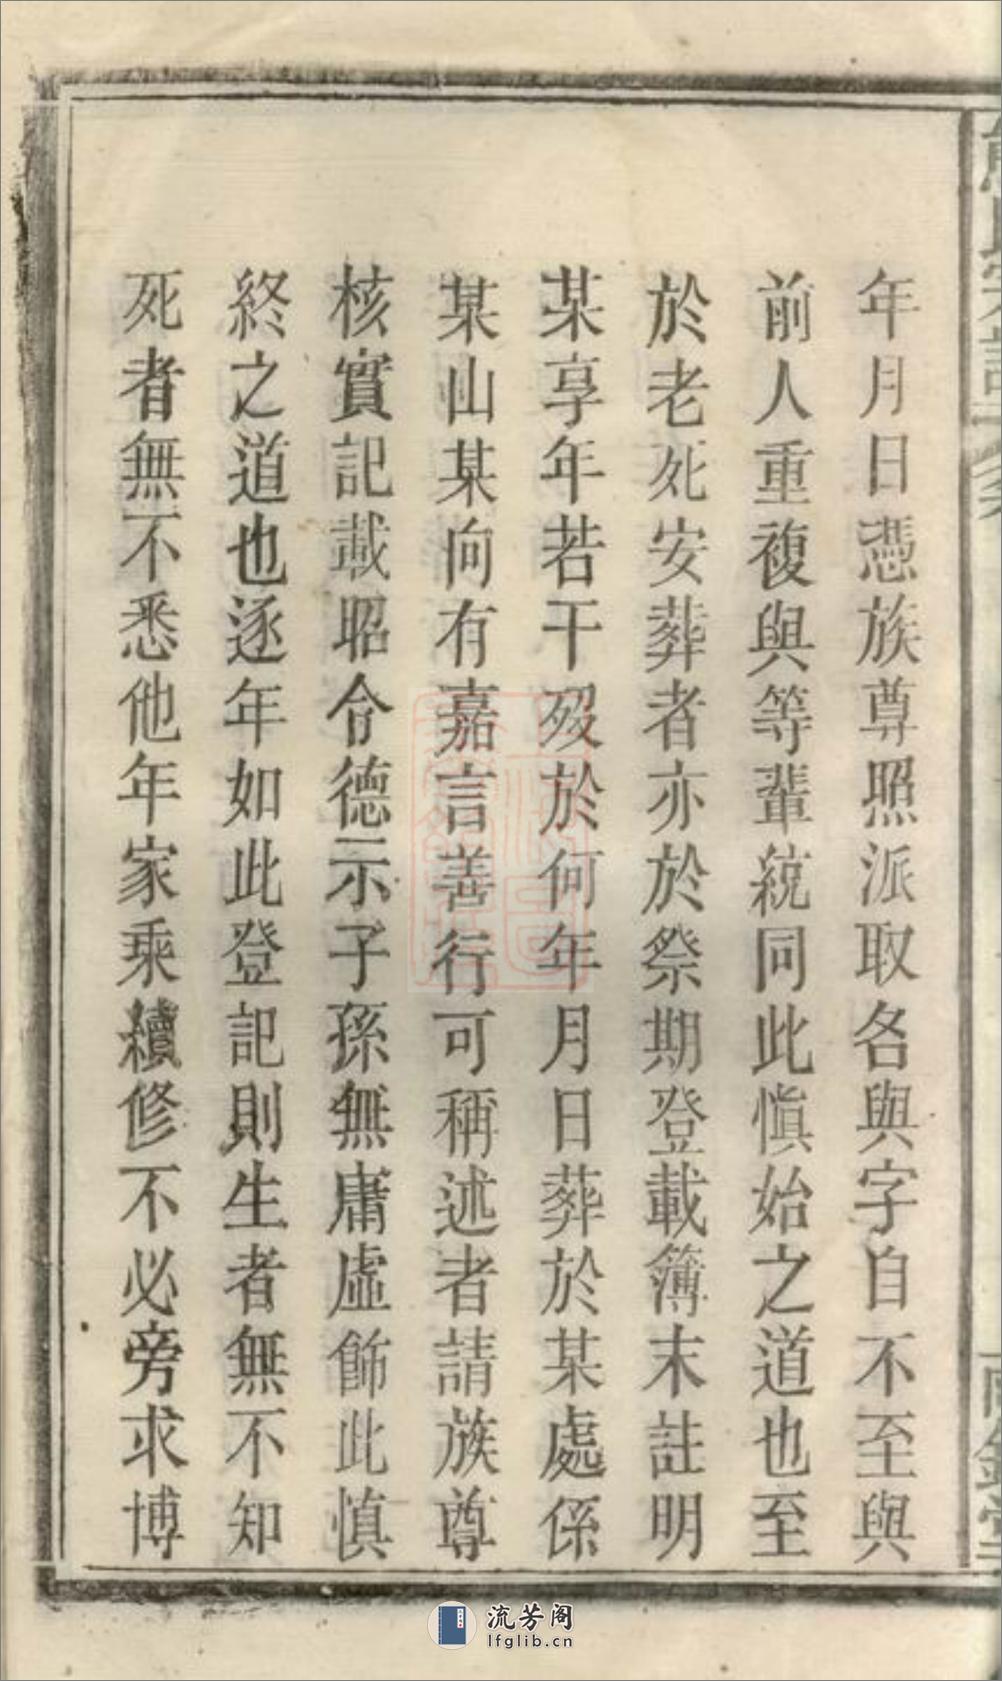 年月日憑族尊照派取各與字自不至與
前人重複與等輩統同此慎始之道也至
於老死安葬者亦於祭期登載簿末註明
某享年若干歿於何年月日葬於某處係
某山某向有嘉言善行可稱述者請族尊
核實記載昭令德示子孫無庸虛飾此慎
終之道也逐年如此登記則生者無不知
死者無不悉他年家乘續修不必旁求博
流芳阁
lfglib.cn